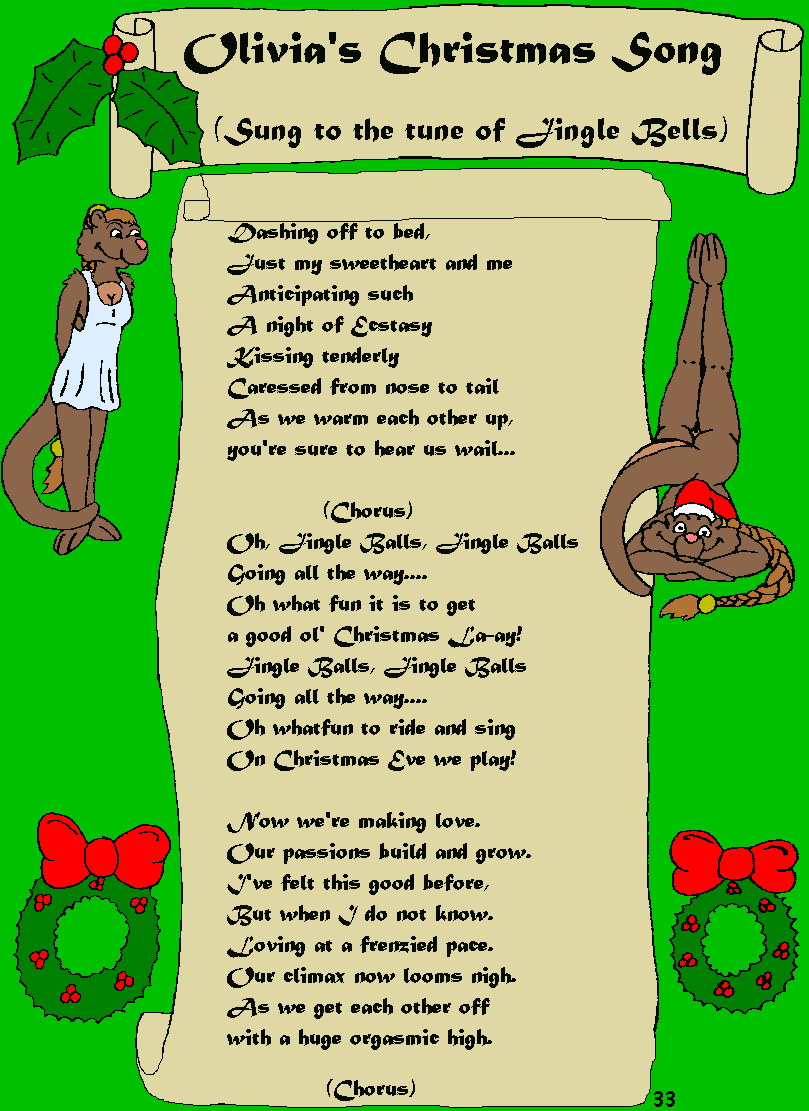 Olivia's Christmas Song
(Sung to the tune of Jingle Bells)
Dashing off to bed,
Just my sweetheart and me
Anticipating such
A night of Ecstasy
Kissing tenderly
Caressed from nose to tail
As we warm each other up,
you're sure to hear us wail...
(Chorus)
Oh, Jingle Balls, Jingle Balls
Going all the way....
Oh what fun it is to get
a good ol' Christmas La-ay!
Jingle Balls, Jingle Balls
Going all the way....
Oh whatfun to ride and sing
On Christmas Eve we play!
Now we're making love.
Our passions build and grow.
I've felt this good before,
But when I do not know.
Loving at a frenzied pace.
Our climax now looms nigh.
As we get each other off
with a huge orgasmic high.
(Chorus)
33